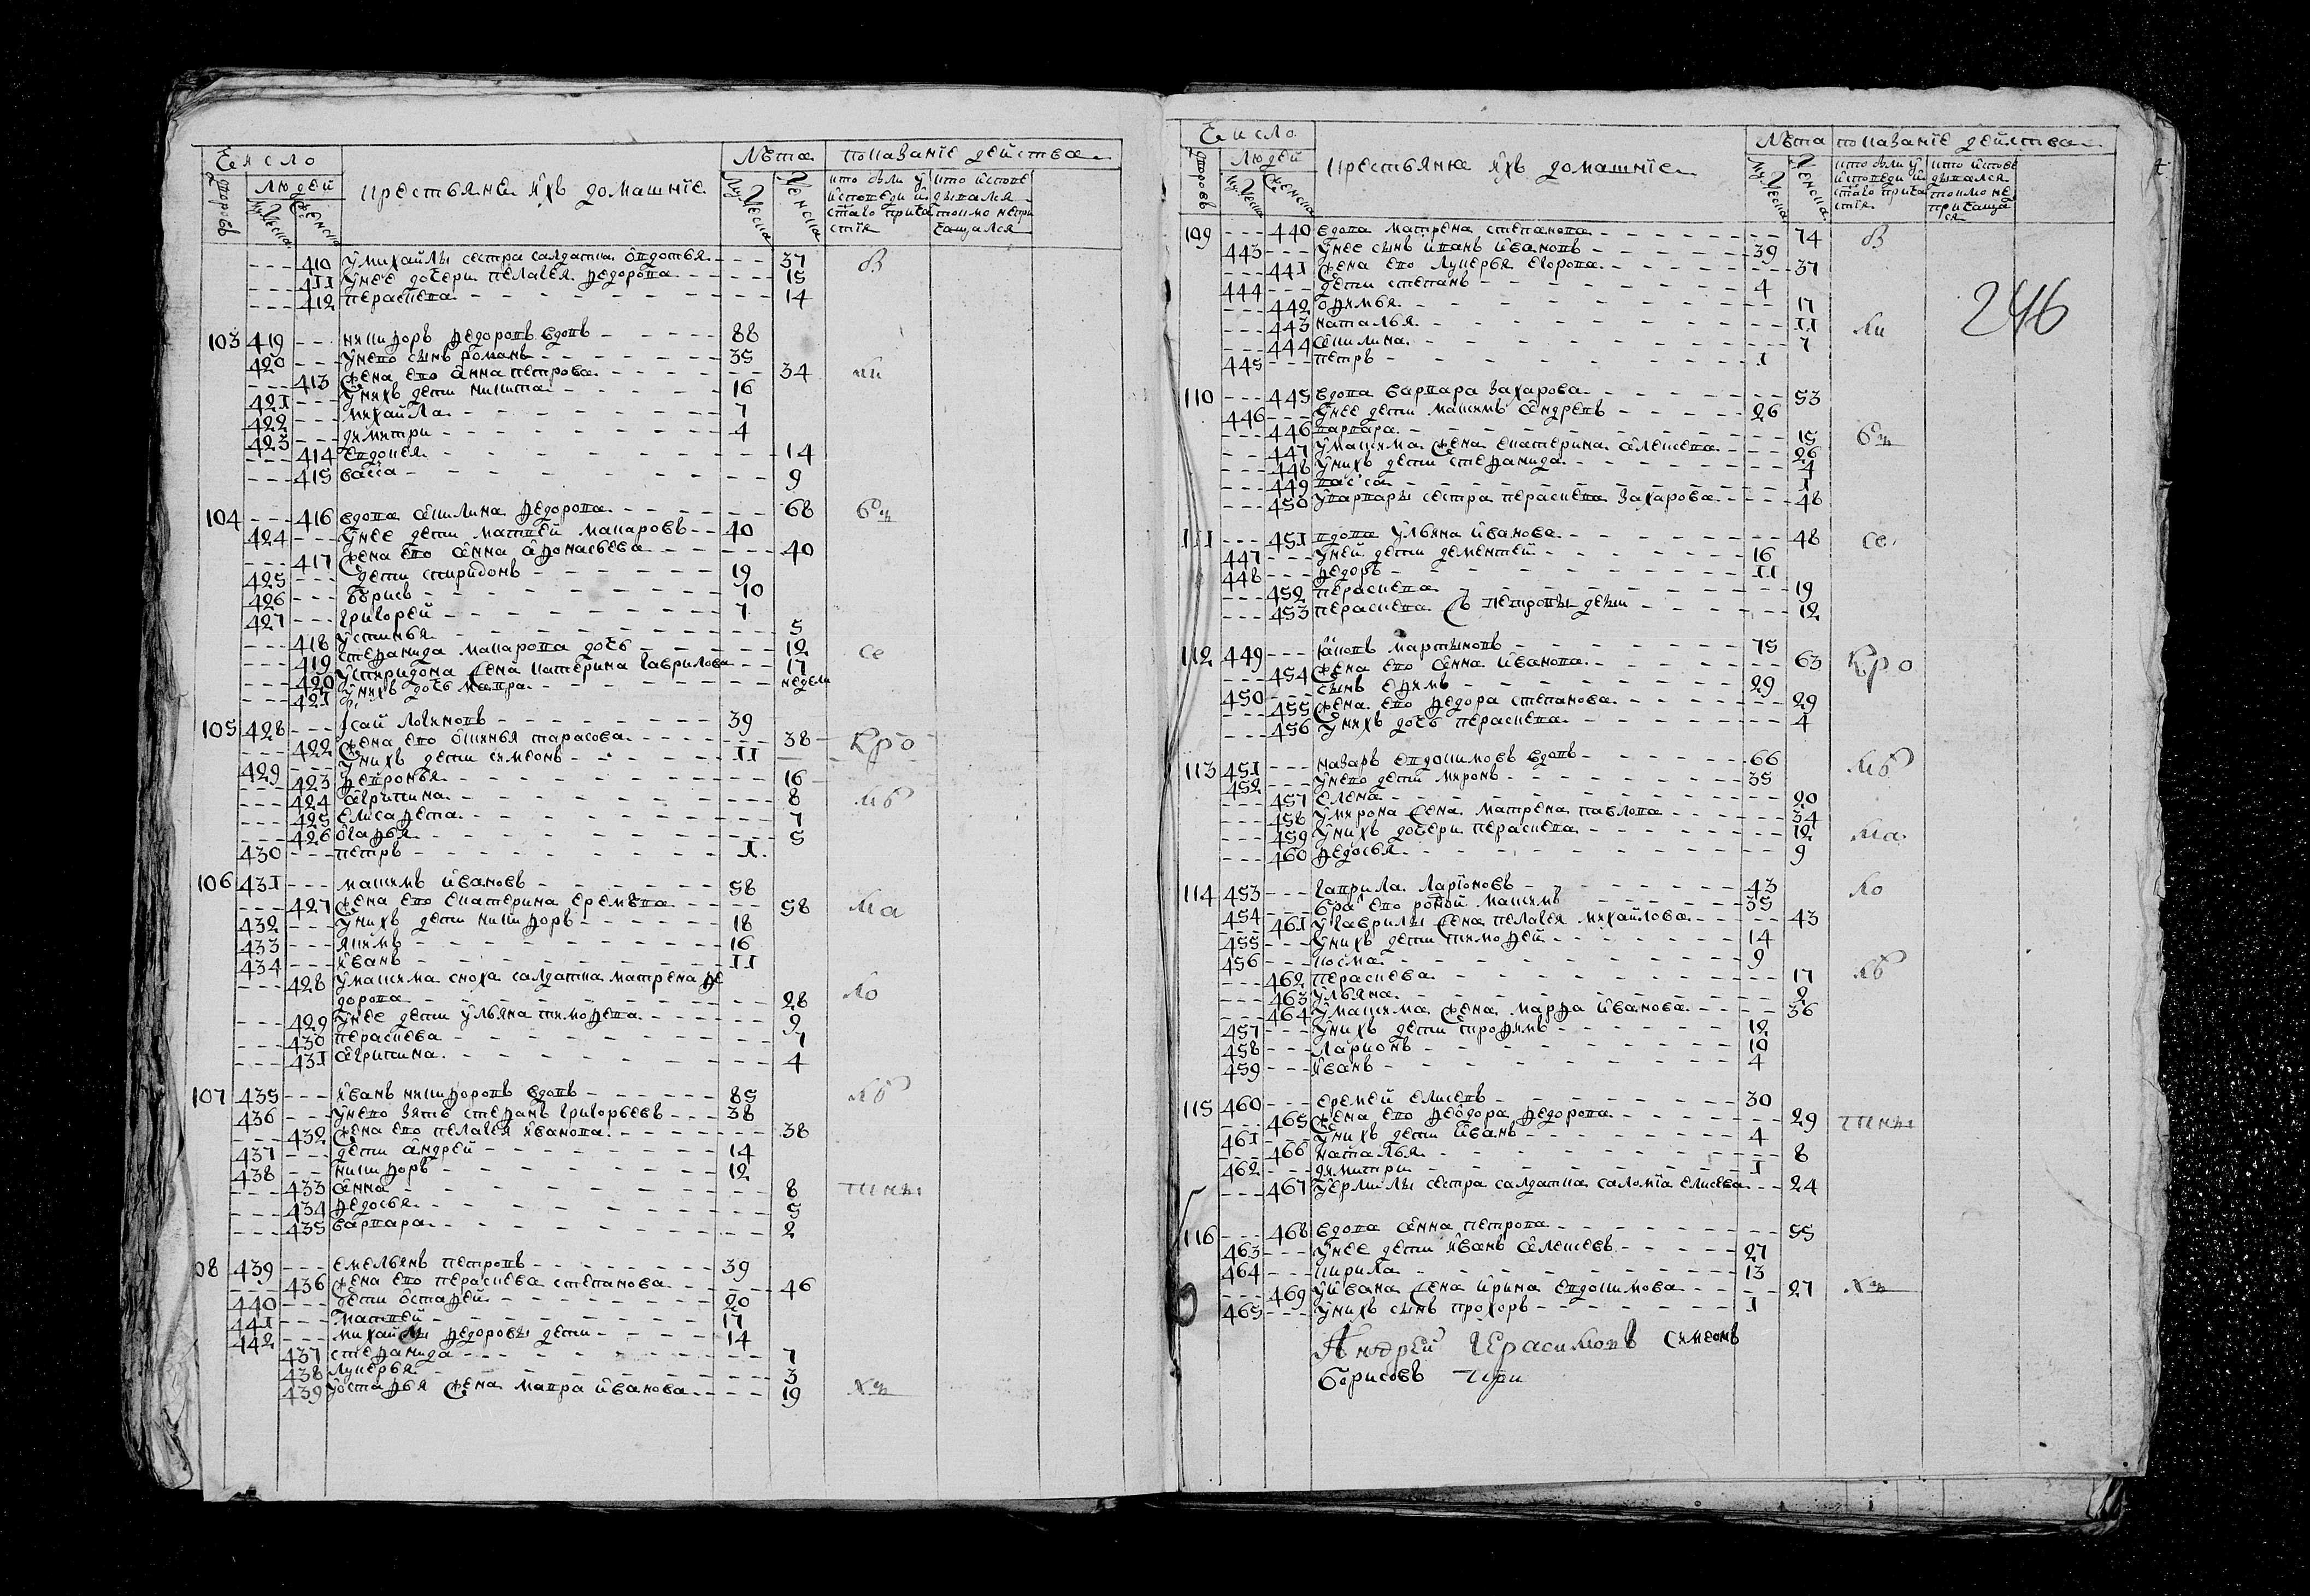 Число
Лѣта показанїе действа
людей
дворовъ
мужеска
женска
крестьяне ихъ домашнїе
мужеска
женска
кто были у исповеди и святаго причастїя
кто исповедывался токмо непричащался
410 умихайлы сестра салдатка овдотья 37
411 унее дочери пелагея федорова 15
412 пераскева 14
103 419 никифоръ федоровъ вдовъ 88
420 унево сынъ романъ 35
413 жена ево анна петрова 34
421 унихъ дети никита 16
422 михайла 7
423 димитри 4
414 евдокея 14
415 васса 9
104 416 вдова акилина федорова 68
424 унее дети матвей макаровъ 40
417 жена ево анна афонасьева 40
425 дети спиридонъ 19
426 борисъ 10
427 григорей 7
418 устинья 5
419 стефанида макарова дочь 12
420 успиридона жена катерина гаврилова 17
421 унихъ дочь мавра недели
105 428 исай логиновъ 39
422 жена ево офимья тарасова 38
429 унихъ дети симеонъ 11
423 февронья 16
424 агрипина 8
425 елисафета 7
426 агафья 5
430 петръ 1
106 431 макимъ ивановъ 58
427 жена ево екатерина еремѣева 58
432 унихъ дети никифоръ 18
433 якимъ 16
434 иванъ 11
428 умакима сноха салдатка матрена фе
дорова 28
429 унее дети ульяна тимофева 9
430 пераскева 7
431 агрипина 4
107 435 иванъ никифоровъ вдовъ 85
436 унево зять стефанъ григорьевъ 38
432 жена ево пелагея иванова 38
437 дети андрей 14
438 никифоръ 12
433 анна 8
434 федосья 5
435 варвара 2
08 439 емельянъ петровъ 39
436 жена ево пераскева степанова 46
440 дети остафей 20
441 матвей 17
442 михайлы федоровы дети 14
437 стефанида 7
438 лукерья 3
439 уостафья жена мавра иванова 19
Число
Лѣта показанїе действа
людей
дворовъ
мужеска
женска
крестьяне ихъ домашнїе
мужеска
женска
кто были у исповеди и святаго причастїя
кто исповедывался токмо непричащался
246
109 440 вдова матрена степанова 74
443 унее сынъ иванъ ивановъ 39
441 жена ево лукерья егорова 37
444 дети степанъ 4
442 офимья 17
443 наталья 11
444 акилина 7
445 петръ 1
110 445 вдова варвара захарова 53
446 унее дети макимъ андревъ 26
446 варвара 15
447 умакима жена екатерина алексева 26
448 унихъ дети стефанида 4
449 васса 1
450 уварвары сестра пераскева захарова 48
111 451 вдова ульяна иванова 48
447 уней дети дементей 16
448 федоръ 11
452 пераскева 19
453 пераскева петровы дети 12
112 449 яковъ мартыновъ 75
454 жена ево анна иванова 63
450 сынъ ефимъ 29
455 жена ево федора степанова 29
456 унихъ дочь пераскева 4
113 451 назаръ евдокимовъ вдовъ 66
452 унево дети миронъ 35
457 елена 20
458 умирона жена матрена павлова 34
459 унихъ дочери пераскева 12
460 федосья 9
114 453 гаврила ларїоновъ 43
454 бра ево роной макимъ 35
461 угаврилы жена пелагея михайлова 43
455 унихъ дети тимофей 14
456 косма 9
462 пераскева 17
463 ульяна 2
464 умакима жена марфа иванова 36
457 унихъ дети трофимъ 12
458 ларионъ 10
459 иванъ 4
115 460 еремей елисевъ 30
465 жена ево феодора федорова 29
461 унихъ дети иванъ 4
466 наталья 8
462 димитри 1
467 уермилы сестра салдатка саломїа елисева 24
116 468 вдова анна петрова 55
463 унее дети иванъ алексевъ 27
464 кирила 13
469 уивана жена ирина евдокимова 27
465 унихъ сынъ прохоръ 1
Андрей Герасимовъ симеонъ
борисовъ